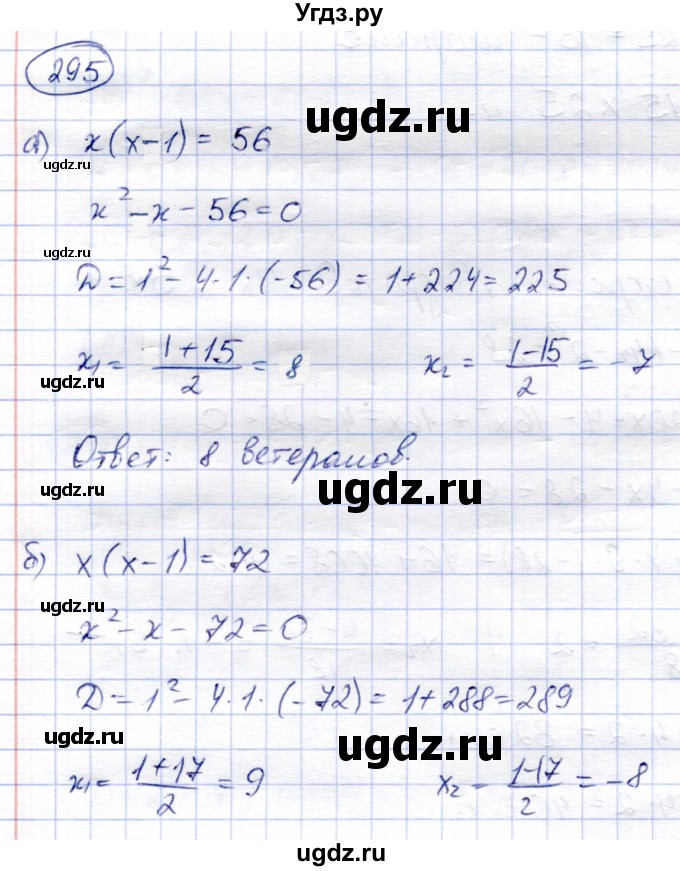 Угдз.ру
295
ugdz.ru
а) x(x-1) = 56
ugdz.ru
x² - x - 56 = 0
ugdz.ru
D = 1² - 4·1·(-56) = 1+224 = 225
ugdz.ru
x₁ = 1+15/2 = 8 x₂ = 1-15/2 = -7
ugdz.ru
Ответ: 8 ветеранов.
ugdz.ru
ugdz.ru
б) x(x-1) = 72
ugdz.ru
x² - x - 72 = 0
D = 1² - 4·1·(-72) = 1+288 = 289
ugdz.ru
ugdz.ru
x₁ = 1+17/2 = 9 x₂ = 1-17/2 = -8
ugdz.ru